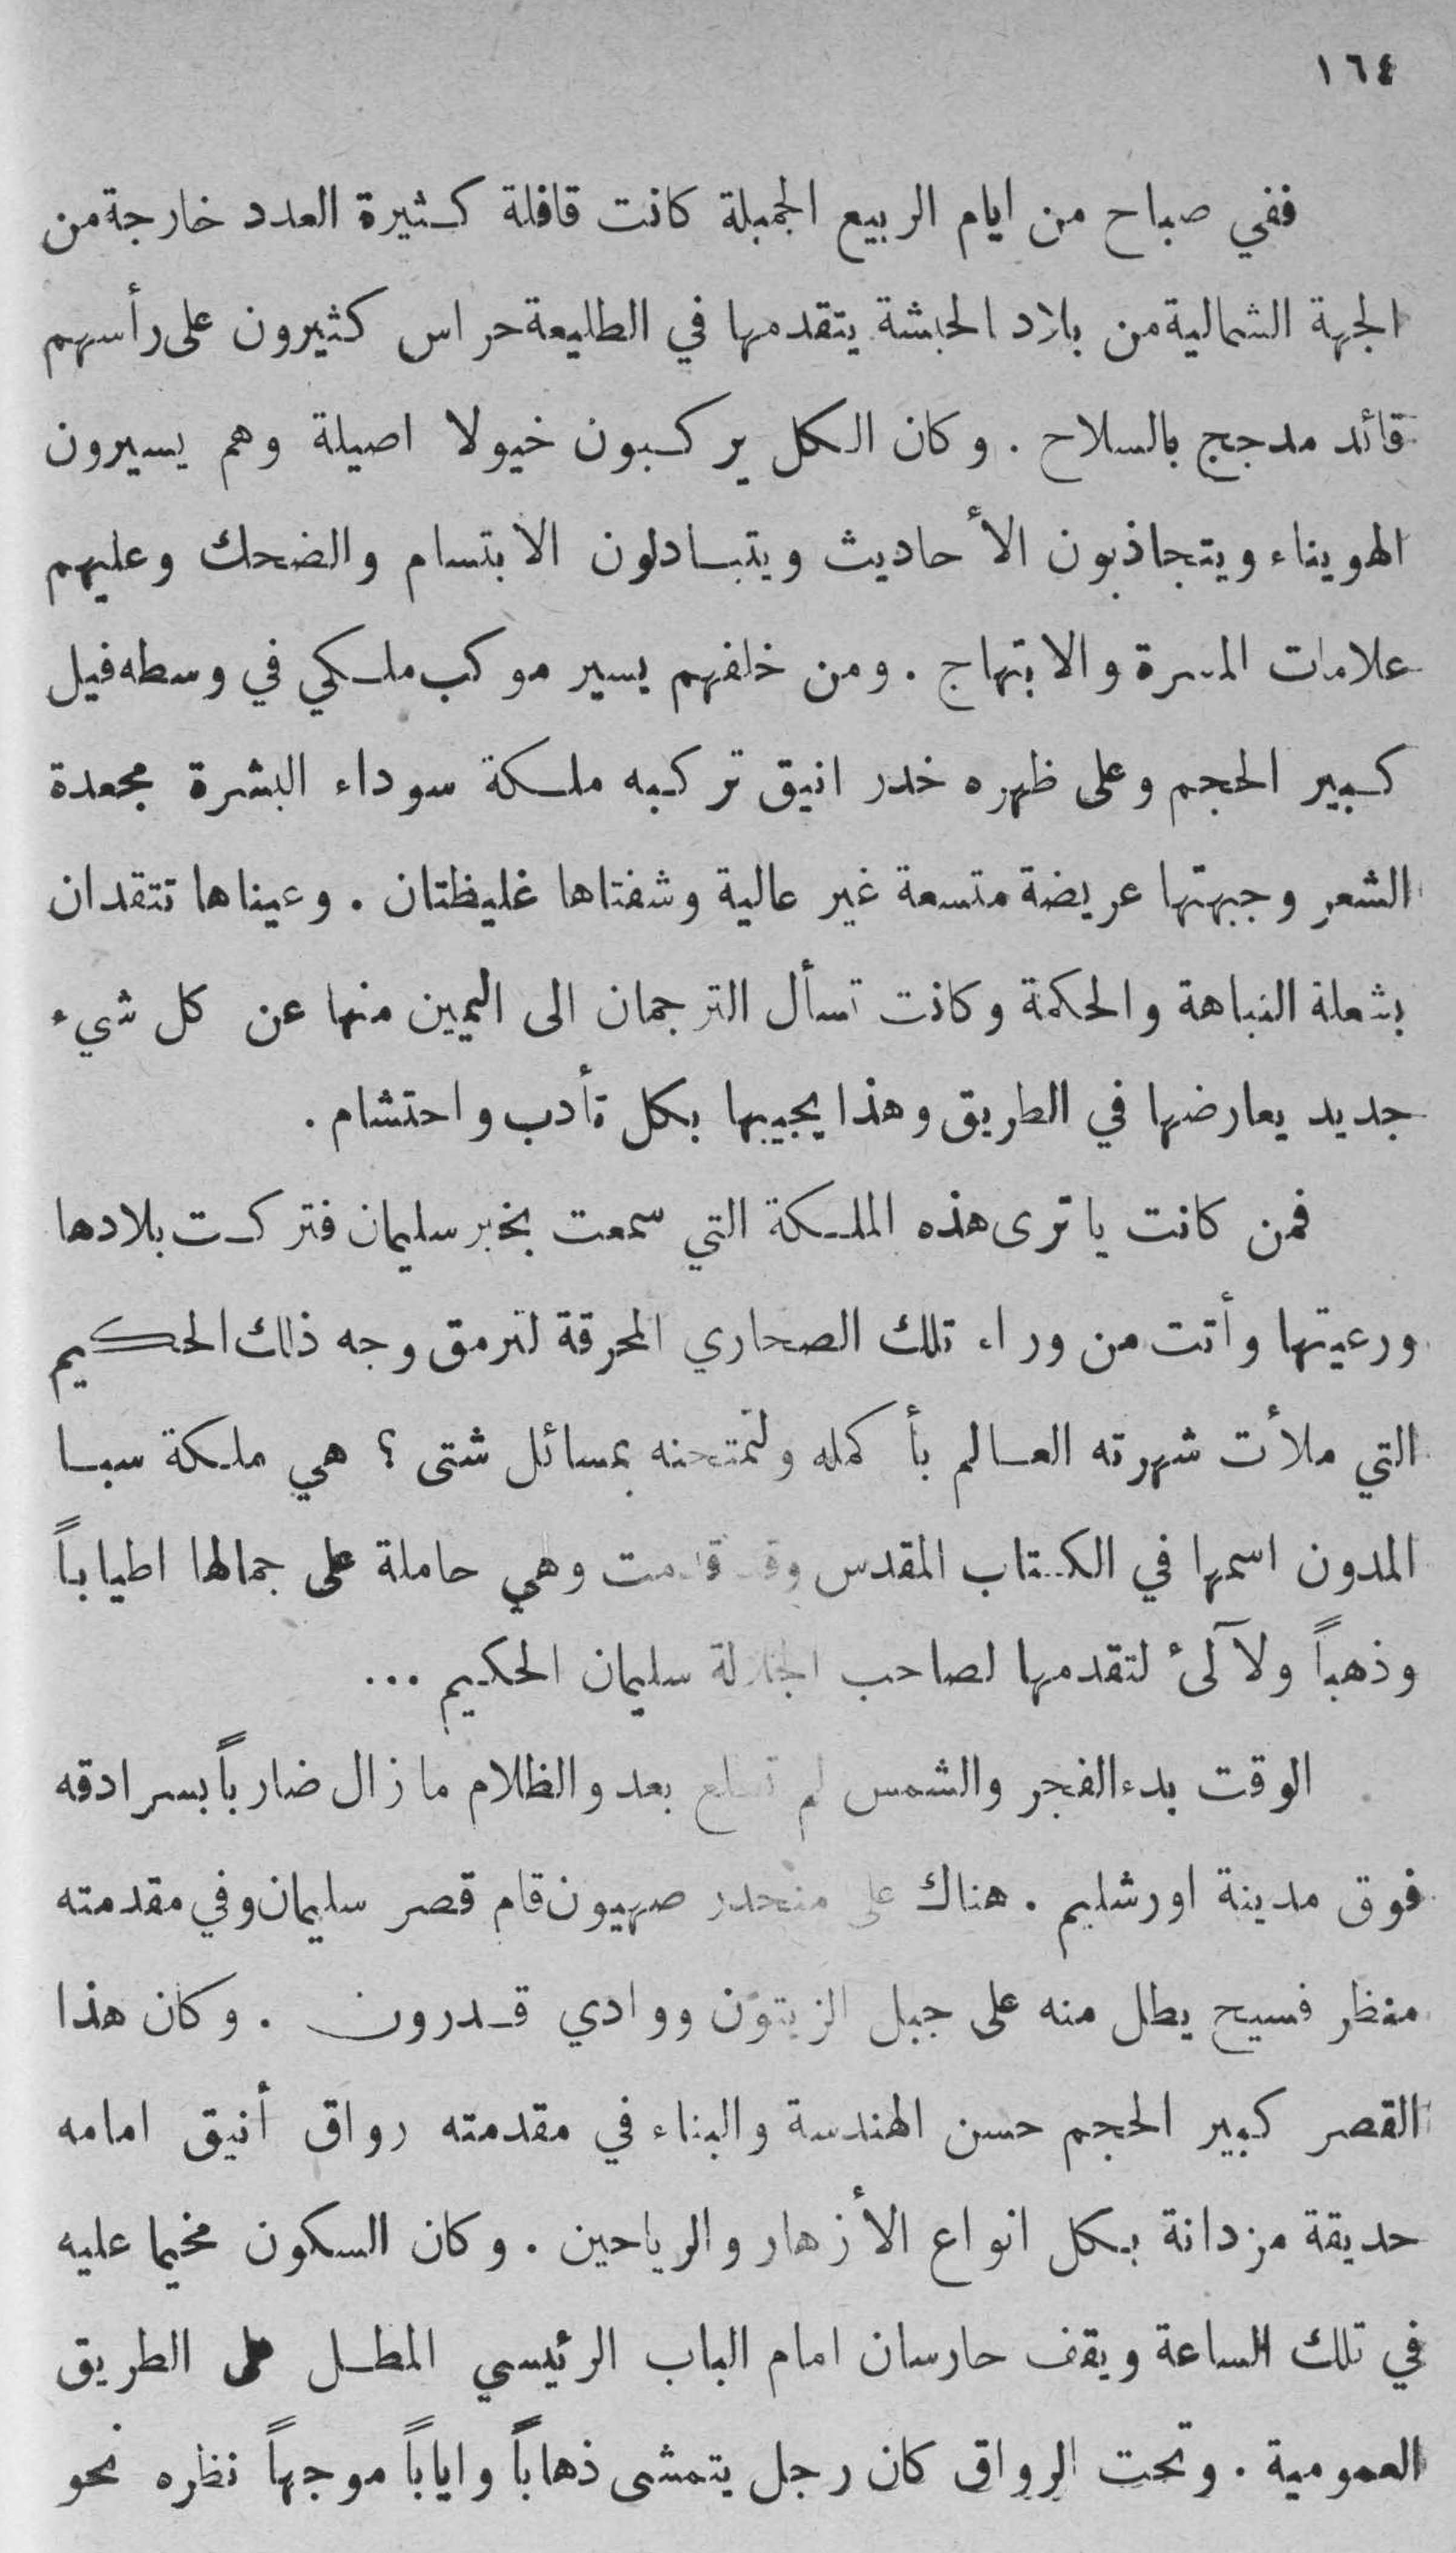 ١٦٤
ففي صباح من ايام الربيع الجميلة كانت قافلة كثيرة العدد خارجة من
الجهة الشمالية من بلاد الحبشة يتقدمها في الطليعة حراس كثيرون على رأسهم
قائد مدجج بالسلاح . وكان الكل يركبون خيولا اصيلة وهم يسيرون
الهويناء ويتجاذبون الأحاديث ويتبادلون الابتسام والضحك وعليهم
علامات المسرة والابتهاج . ومن خلفهم يسير موكب ملكي في وسطه فيل
كبير الحجم وعلى ظهره خدر انيق تركبه ملكة سوداء البشرة مجعدة
الشعر وجبهتها عريضة متسعة غير عالية وشفتاها غليظتان . وعيناها تتقدان
بشعلة النباهة والحكمة وكانت تسأل الترجمان الى اليمين منها عن كل شيء
جديد يعارضها في الطريق وهذا يجيبها بكل تأدب واحتشام .
فمن كانت يا ترى هذه الملكة التي سمعت بخبر سليمان فتركت بلادها
ورعيتها وأتت من وراء تلك الصحاري المحرقة لترمق وجه ذلك الحكيم
التي ملأت شهرته العالم بأكمله ولتمتحنه بمسائل شتى ؟ هي ملكة سبا
المدون اسمها في الكتاب المقدس وقد قدمت وهي حاملة على جمالها اطياباً
وذهباً ولآلئ لتقدمها لصاحب الجلالة سليمان الحكيم ...
الوقت بدء الفجر والشمس لم تطلع بعد والظلام ما زال ضارباً بسرادقه
فوق مدينة اورشليم . هناك على منحدر صهيون قام قصر سليمان وفي مقدمته
منظر فسيح يطل منه على جبل الزيتون ووادي قدرون . وكان هذا
القصر كبير الحجم حسن الهندسة والبناء في مقدمته رواق أنيق امامه
حديقة مزدانة بكل انواع الأزهار والرياحين . وكان السكون مخيما عليه
في تلك الساعة ويقف حارسان امام الباب الرئيسي المطل على الطريق
العمومية . وتحت الرواق كان رجل يتمشى ذهاباً واياباً موجهاً نظره نحو